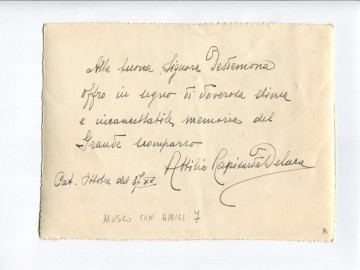 Alla buona Signora Desdemona
offro in segno di doverosa stima
e incancellabile memoria del
Grande scomparso
Attilio Rapisarda Deluca
Cat. Ottobre del XV
MUSCO CON AMICI 7